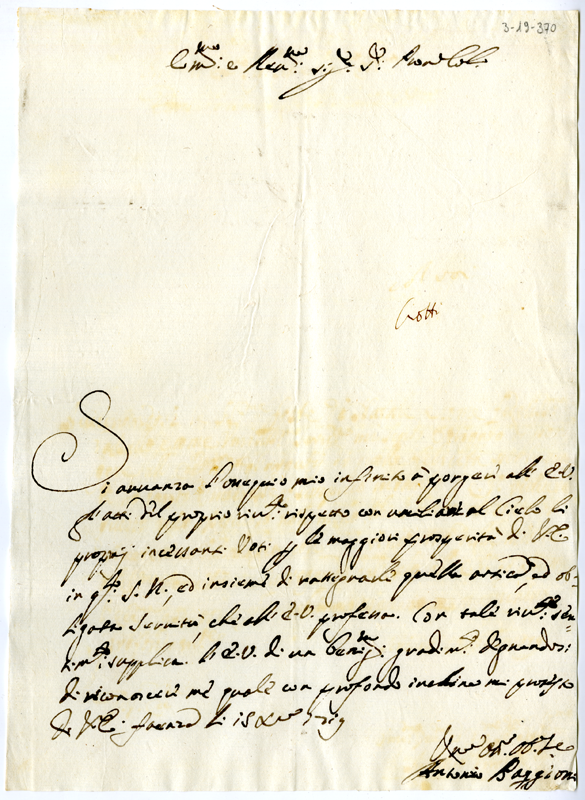 3-19-370
Em.mo e Rev.mo Sig.r S.r Pron Col.
Crotti
Si auuanza l'ossequio mio infinito à porgere alla E.V.
gl'atti del proprio riu.te rispetto con umiliare al Cielo li
proprij incessanti Voti p le maggiori prosperità di V.E.
in q.te S. N., ed insieme di rassegnarle quella antica, ed ob-
ligata Seruitù, che alla E.V. professo. Con tale riu.te sen-
tim.to supplico l'E.V. di un benig.mo gradim.to degnandosi
di riconoscere me quale con profondo inchino mi protesto
De V.E. Ferrara li 18 Xbre 1719
Um.o Dt.o Ob. Se
Antonio Baggioni